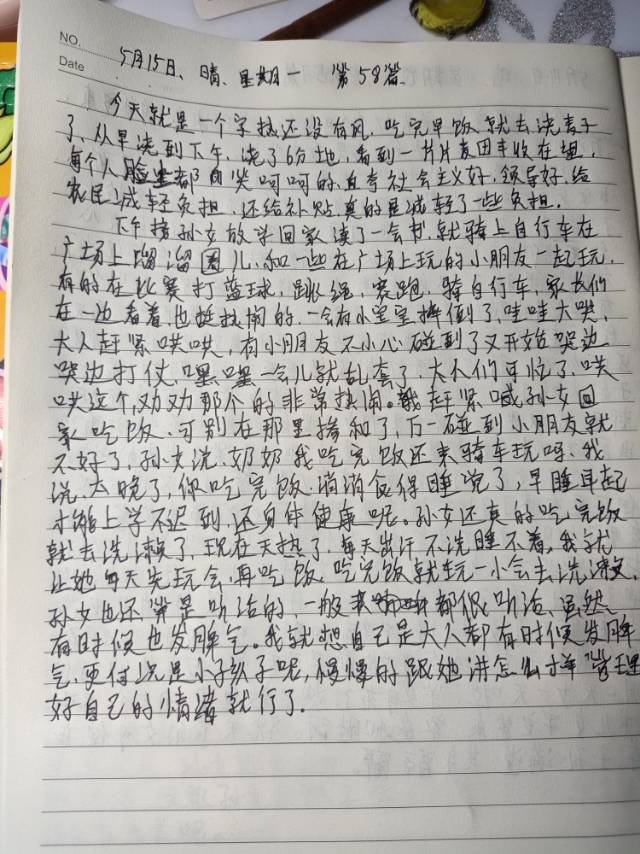 NO.
Date
5月15日、晴、星期一 第58篇
今天就是一个字热还没有风，吃完早饭就去浇麦子
了，从早浇到下午，浇了6分地，看到一片片麦田丰收在望，
每个人脸上都自笑呵呵的，自夸社会主义好，领导好，给
农民减轻负担，还给补贴真的是减轻了一些负担。
下午接孙女放学回家读了一会书，就骑上自行车在
广场上蹓溜圈儿，和一些在广场上玩的小朋友一起玩，
有的在比赛打蓝球，跳绳，赛跑，骑自行车，家长们
在一边看着，也挺热闹的，一会有小宝宝摔倒了，哇哇大哭，
大人赶紧哄哄，有小朋友不小心碰到了又开始哭边
哭边打仗，嘿嘿一会儿就乱套了，大人们可忙了，哄
哄这个，劝劝那个的非常热闹。我赶紧喊孙女回
家吃饭，可别在那里掺和了，万一碰到小朋友就
不好了，孙女说，奶奶我吃完饭还来骑车玩吗，我
说，太晚了，你吃完饭消消食得睡觉了，早睡早起
才能上学不迟到，还身体健康呢。孙女还真的吃完饭
就去洗漱了，现在天热了，每天出汗不洗睡不着，我就
让她每天先玩会，再吃饭，吃完饭就玩一小会去洗漱，
孙女也还算是听话的，一般都很听话，虽然
有时候也发脾气。我就想自己是大人都有时候发脾
气，更何况是小孩子呢，慢慢的跟她讲怎么样管理
好自己的情绪就行了.